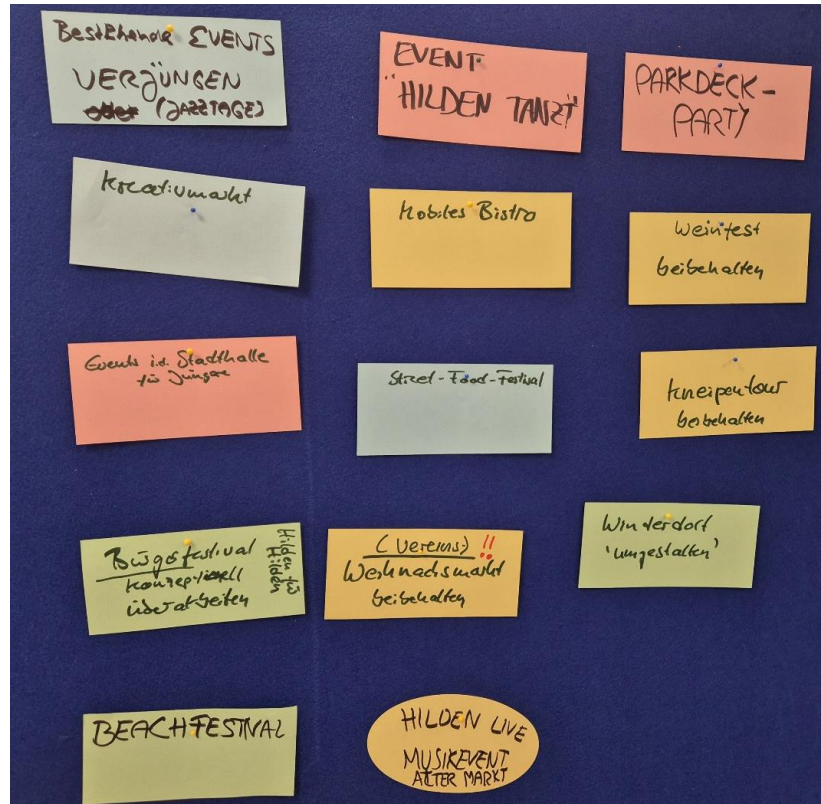 Bestehende EVENTS
VERJÜNGEN
(JAZZTAGE)
EVENT
"HILDEN TANZT"
PARKDECK-
PARTY
Kreativmarkt
Mobiles Bistro
Weinfest
beibehalten
Events i.d. Stadthalle
für Jüngere
Street-Food-Festival
Kneipentour
beibehalten
Bürgerfestival
konzeptionell
überarbeiten
Hilden für
Hilden
(Vereins-) !!
Weihnachtsmarkt
beibehalten
Winterdorf
'umgestalten'
BEACHFESTIVAL
HILDEN LIVE
MUSIKEVENT
ALTER MARKT